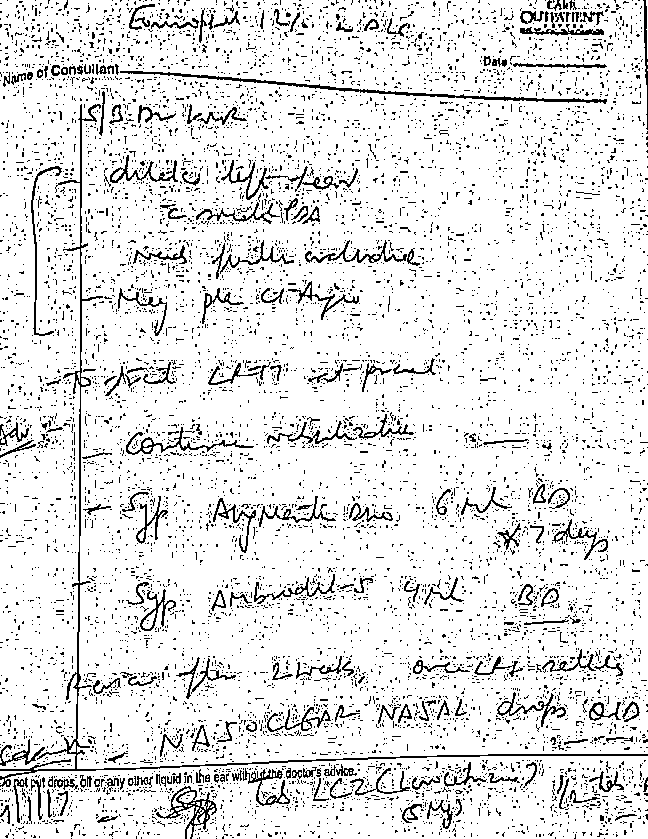 Eosinophil 12% in DLC
CARE
OUTPATIENT
Date
Name of Consultant
S/B Dr
dilated left heart
c small PDA
Need further evaluation
May plan CT Angio
To treat LRTI at present
Adv
Continue nebulization
Syp Augmentin Duo 6 ml BD
x 7 days
Syp Ambrodil-S 4 ml BD
Review after 2 weeks, once LRTI settles
NASOCLEAR NASAL drops QID
Do not put drops, oil or any other liquid in the ear without the doctor's advice.
Syp Tab LCZ (Levocetirizine) 1/2 tab
(5 Mg)